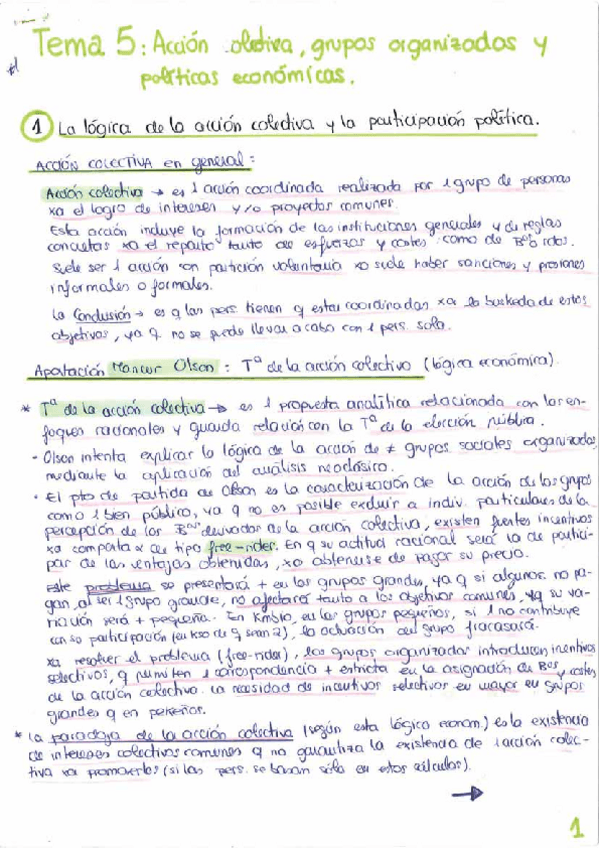 Tema 5: Acción olectiva, grupos organizados y
políticas económicas.
1 La lógica de la acción colectiva y la participación política.
ACCIÓN COLECTIVA en general:
Acción colectiva → es 1 acción coordinada realizada por 1 grupo de personas
xa el logro de intereses y/o proyectos comunes.
Esta acción incluye la formación de las instituciones generales y de reglas
concretas xa el reparto tanto de esfuerzos y costes como de Bºs
Suele ser 1 acción con partición voluntaria xo suele haber sanciones y presiones
informales o formales.
La Conclusión → es q las pers. tienen q estar coordinadas xa la buskeda de estos
objetivos, ya q no se puede llevar a cabo con 1 pers. sola.
Aportación Mancur Olson: Tª de la acción colectiva (lógica económica).
* Tª de la acción colectiva → es 1 propuesta analítica relacionada con los en-
foques racionales y guarda relación con la Tª de la elección pública.
· Olson intenta explicar la lógica de la acción de ≠ grupos sociales organizados
mediante la aplicación del análisis neoclásico.
· El pto de partida de Olson es la caracterización de la acción de los grupos
como 1 bien público, ya q no es posible excluir a indiv. particulares de la
percepción de los Bºs derivados de la acción colectiva, existen fuertes incentivos
xa comporta de tipo free-rider. En q su actitud racional será la de partici-
par de las ventajas obtenidas, xo abtenerse de pagar su precio.
Este problema se presentará + en los grupos grandes, ya q si algunos no pa-
gan, al ser 1 grupo grande, no afectará tanto a los objetivos comunes, ya q su va-
riación será + pequeña. En kmbio, en los grupos pequeños, si 1 no contribuye
con su participación (en kso de q sean 2), la actuación del grupo fracasará.
xa resolver el problema (free-rider), los grupos organizados introducen incentivos
selectivos, q permiten 1 correspondencia + estricta en la asignación de Bºs y costes
de la acción colectiva. La necesidad de incentivos selectivos es mayor en grupos
grandes q en pekeños.
* La paradoja de la acción colectiva (según esta lógica econom.) es la existencia
de intereses colectivos comunes q no garantiza la existencia de 1 acción colec-
tiva xa promoverlos (si las pers. se basan sólo en estos cálculos).
→
1